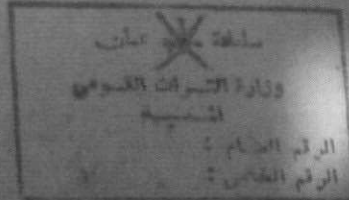 سلطنة عمان
وزارة التراث القومي
الرقم العام :
الرقم الخاص :